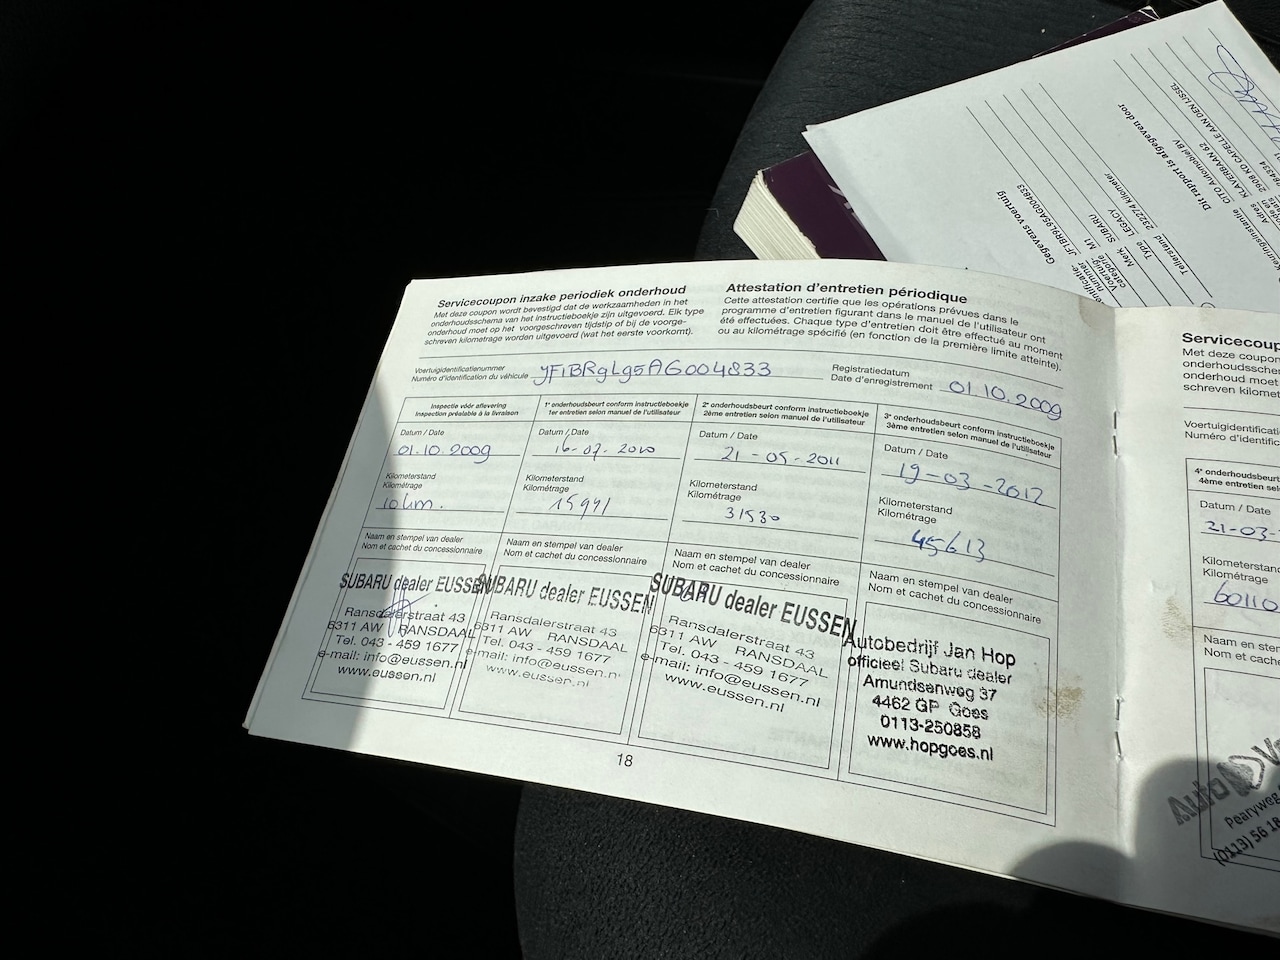 Servicecoupon inzake periodiek onderhoud
Met deze coupon wordt bevestigd dat de werkzaamheden in het
onderhoudsschema van het instructieboekje zijn uitgevoerd. Elk type
onderhoud moet op het voorgeschreven tijdstip of bij de voorge-
schreven kilometrage worden uitgevoerd (wat het eerste voorkomt).
Attestation d'entretien périodique
Cette attestation certifie que les opérations prévues dans le
programme d'entretien figurant dans le manuel de l'utilisateur ont
été effectuées. Chaque type d'entretien doit être effectué au moment
ou au kilométrage spécifié (en fonction de la première limite atteinte).
Voertuigidentificatienummer
Numéro d'identification du véhicule JF1BR9L95AG004833
Registratiedatum
Date d'enregistrement 01.10.2009
Inspectie vóór aflevering
Inspection préalable à la livraison
Datum / Date
01.10.2009
Kilometerstand
Kilométrage
10 km.
Naam en stempel van dealer
Nom et cachet du concessionnaire
SUBARU dealer EUSSEN
Ransdalerstraat 43
6311 AW RANSDAAL
Tel. 043 - 459 1677
e-mail: info@eussen.nl
www.eussen.nl
1e onderhoudsbeurt conform instructieboekje
1er entretien selon manuel de l'utilisateur
Datum / Date
16-07-2010
Kilometerstand
Kilométrage
15991
Naam en stempel van dealer
Nom et cachet du concessionnaire
SUBARU dealer EUSSEN
Ransdalerstraat 43
6311 AW RANSDAAL
Tel. 043 - 459 1677
e-mail: info@eussen.nl
www.eussen.nl
2e onderhoudsbeurt conform instructieboekje
2ème entretien selon manuel de l'utilisateur
Datum / Date
21-05-2011
Kilometerstand
Kilométrage
31530
Naam en stempel van dealer
Nom et cachet du concessionnaire
SUBARU dealer EUSSEN
Ransdalerstraat 43
6311 AW RANSDAAL
Tel. 043 - 459 1677
e-mail: info@eussen.nl
www.eussen.nl
3e onderhoudsbeurt conform instructieboekje
3ème entretien selon manuel de l'utilisateur
Datum / Date
19-03-2012
Kilometerstand
Kilométrage
45613
Naam en stempel van dealer
Nom et cachet du concessionnaire
Autobedrijf Jan Hop
officieel Subaru dealer
Amundsenweg 37
4462 GP Goes
0113-250858
www.hopgoes.nl
18
Servicecoup
Met deze coupon
onderhoudssche
onderhoud moet
schreven kilomet
Voertuigidentific
Numéro d'identific
4e onderhoudsbeurt
4ème entretien sel
Datum / Date
21-03-
Kilometerstand
Kilométrage
60110
Naam en stempel
Nom et cachet
Auto
Pearyweg
(0113) 56 18
Gegevens voertuig
JF1BR9L95AG004833
M1
Merk SUBARU
Type LEGACY
Tellerstand 232274 kilometer
Dit rapport is afgegeven door
CITO Automobiel BV
Adres KLAVERBAAN 62
2908 KD CAPELLE AAN DEN IJSSEL